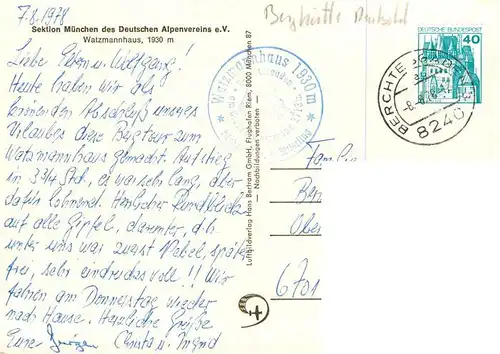 7.8.1978
Sektion München des Deutschen Alpenvereins e.V.
Watzmannhaus, 1930 m
Liebe Eltern u. Wolfgang!
Heute haben wir als
krönenden Abschluß unseres
Urlaubes diese Bergtour zum
Watzmannhaus gemacht. Aufstieg
in 3 3/4 Std., es war sehr lang, aber
dafür lohnend. Herrlicher Rundblick
auf alle Gipfel, darunter, d.h.
unter uns war zuerst Nebel, später
frei, sehr eindrucksvoll!! Wir
fahren am Donnerstag wieder
nach Hause. Herzliche Grüße
Eure Christa u. Ingrid
Luftbildverlag Hans Bertram GmbH, Flughafen Riem, 8000 München 87
— Nachbildungen verboten —
Watzmannhaus 1930 m
DEUTSCHE BUNDESPOST
40
BERCHTESGADEN
8240
Familie
Ben
Ober
6701